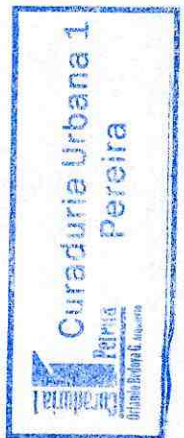 Curaduria Urbana 1
Pereira
Curaduria1
Pereira
Orlando Bedoya G. Arquitecto